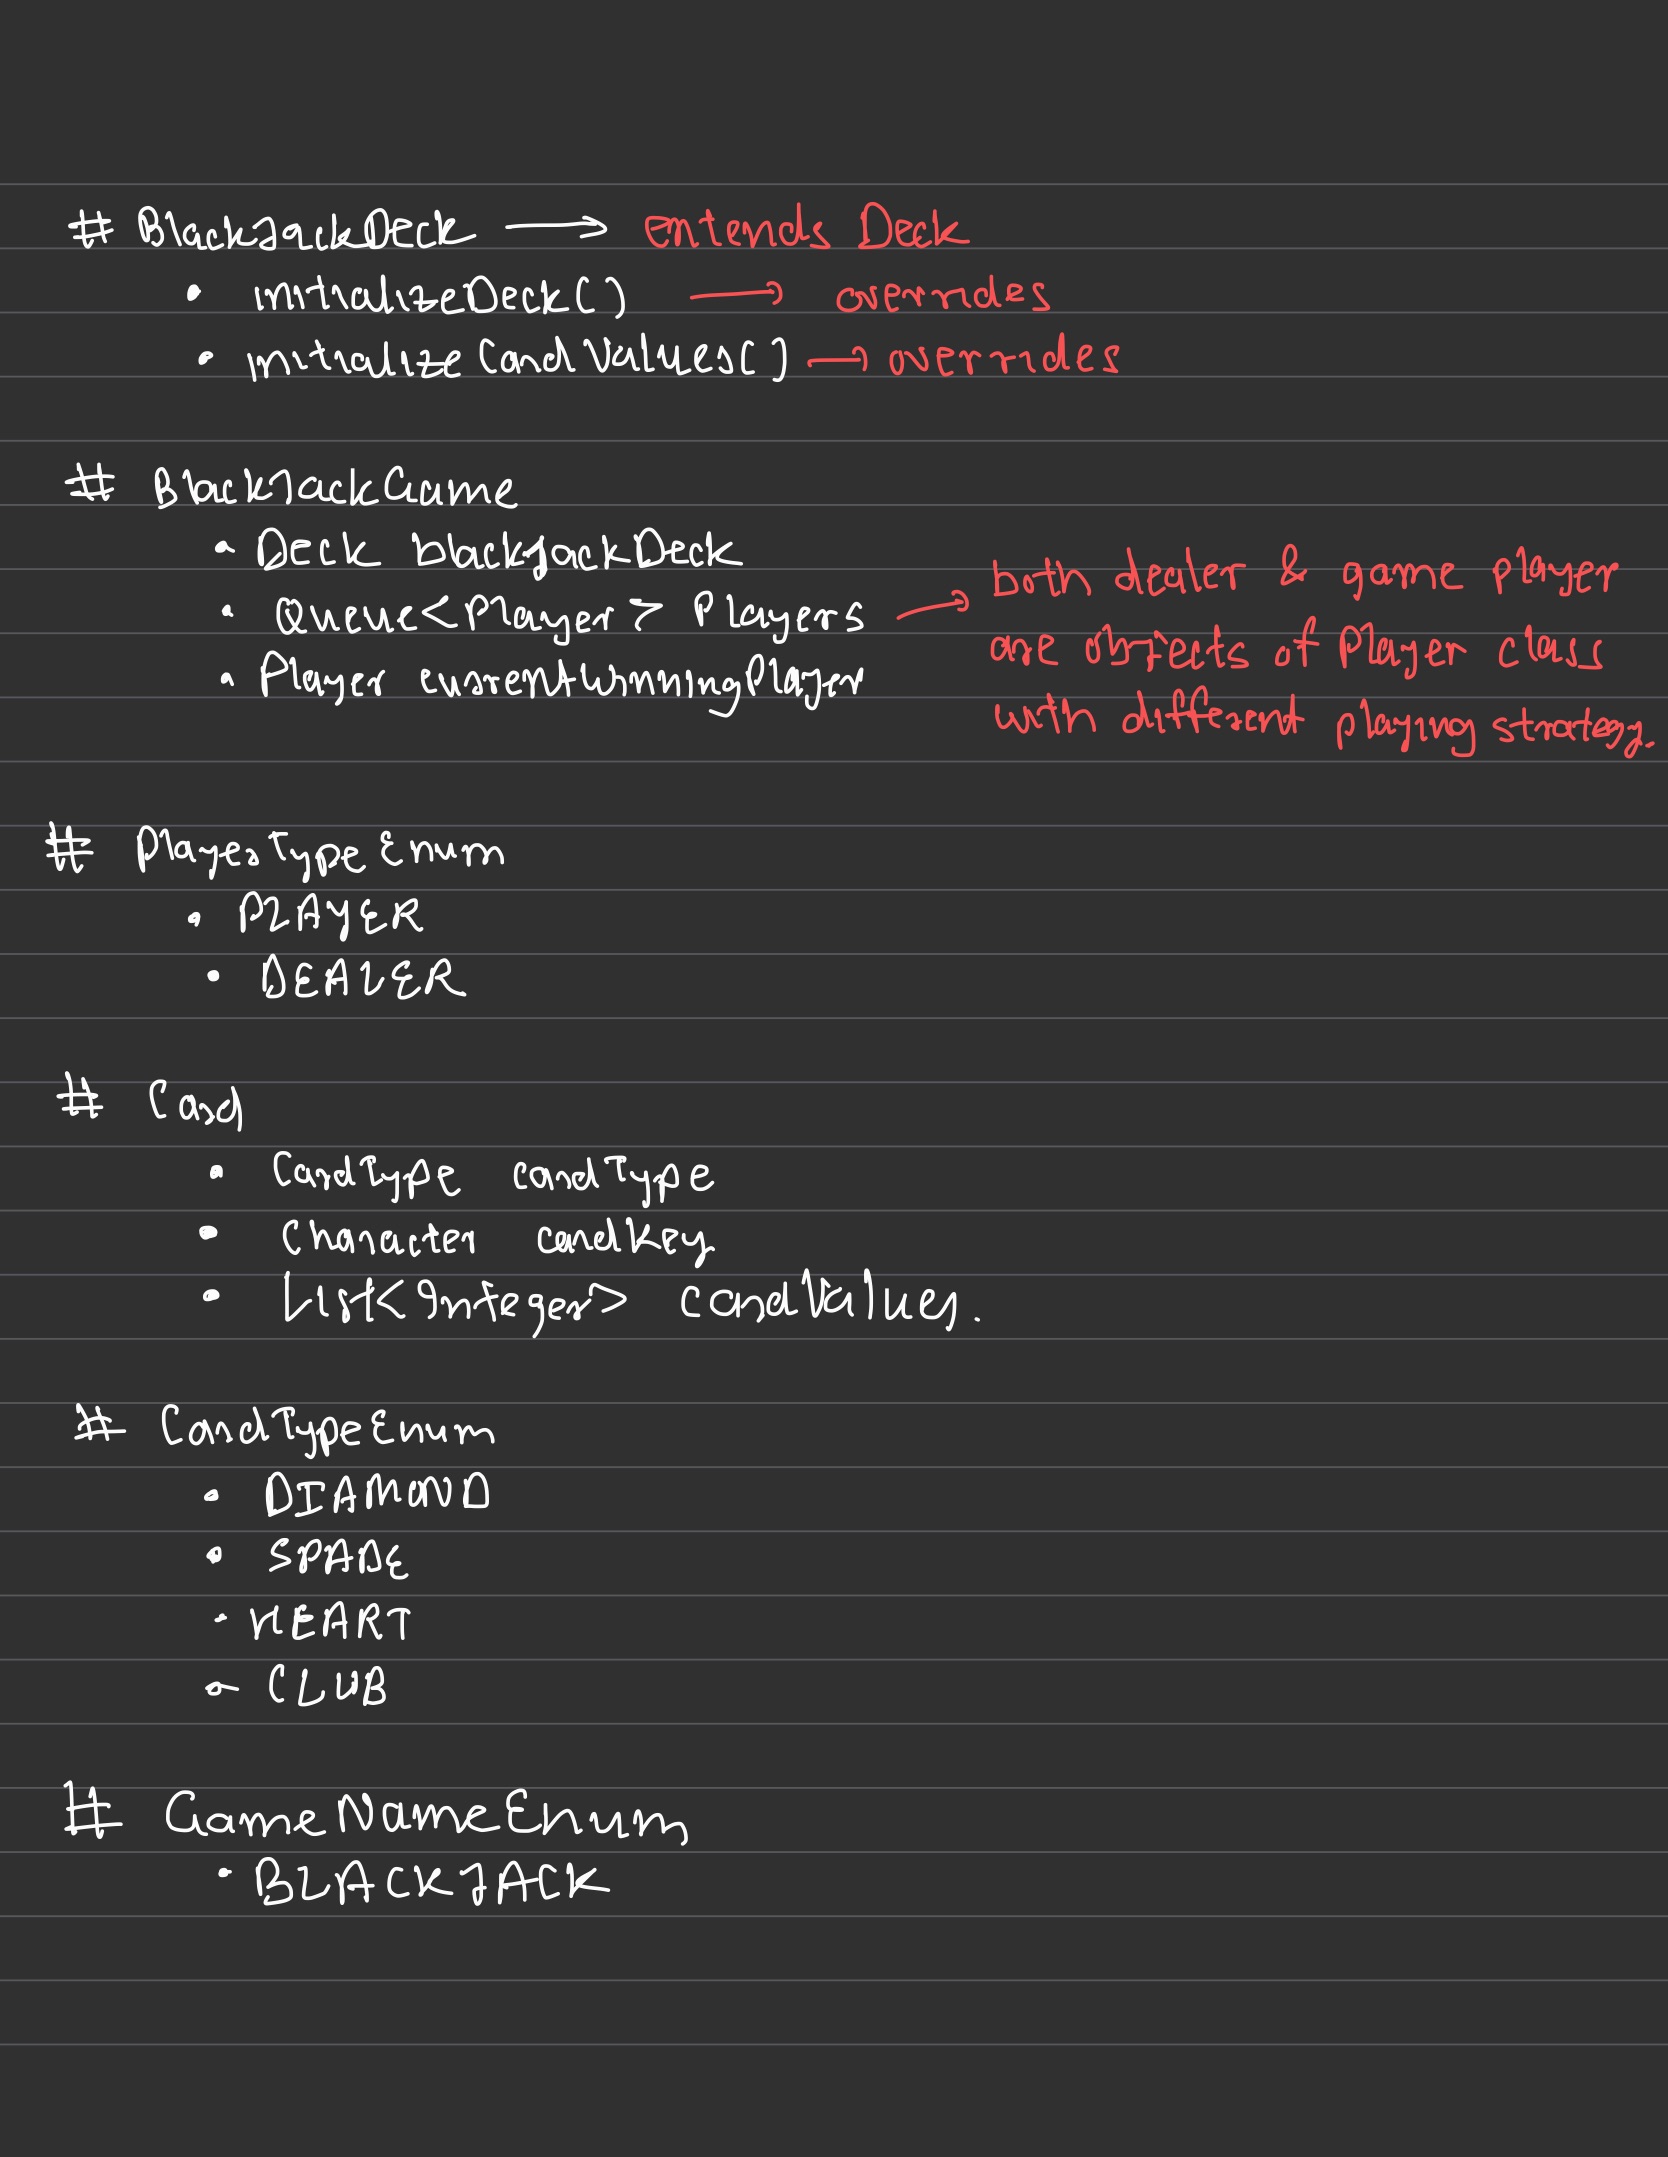 # BlackJackDeck → extends Deck
• initializeDeck() → overrides
• initializeCardValues() → overrides
# BlackJackGame
• Deck blackjackDeck
• Queue<Player> Players → both dealer & game player
are objects of Player class
• Player currentWinningPlayer
with different playing strategy.
# PlayerTypeEnum
• PLAYER
• DEALER
# Card
• CardType cardType
• Character cardKey
• List<Integer> cardValues.
# CardTypeEnum
• DIAMOND
• SPADE
• HEART
• CLUB
# GameNameEnum
• BLACKJACK